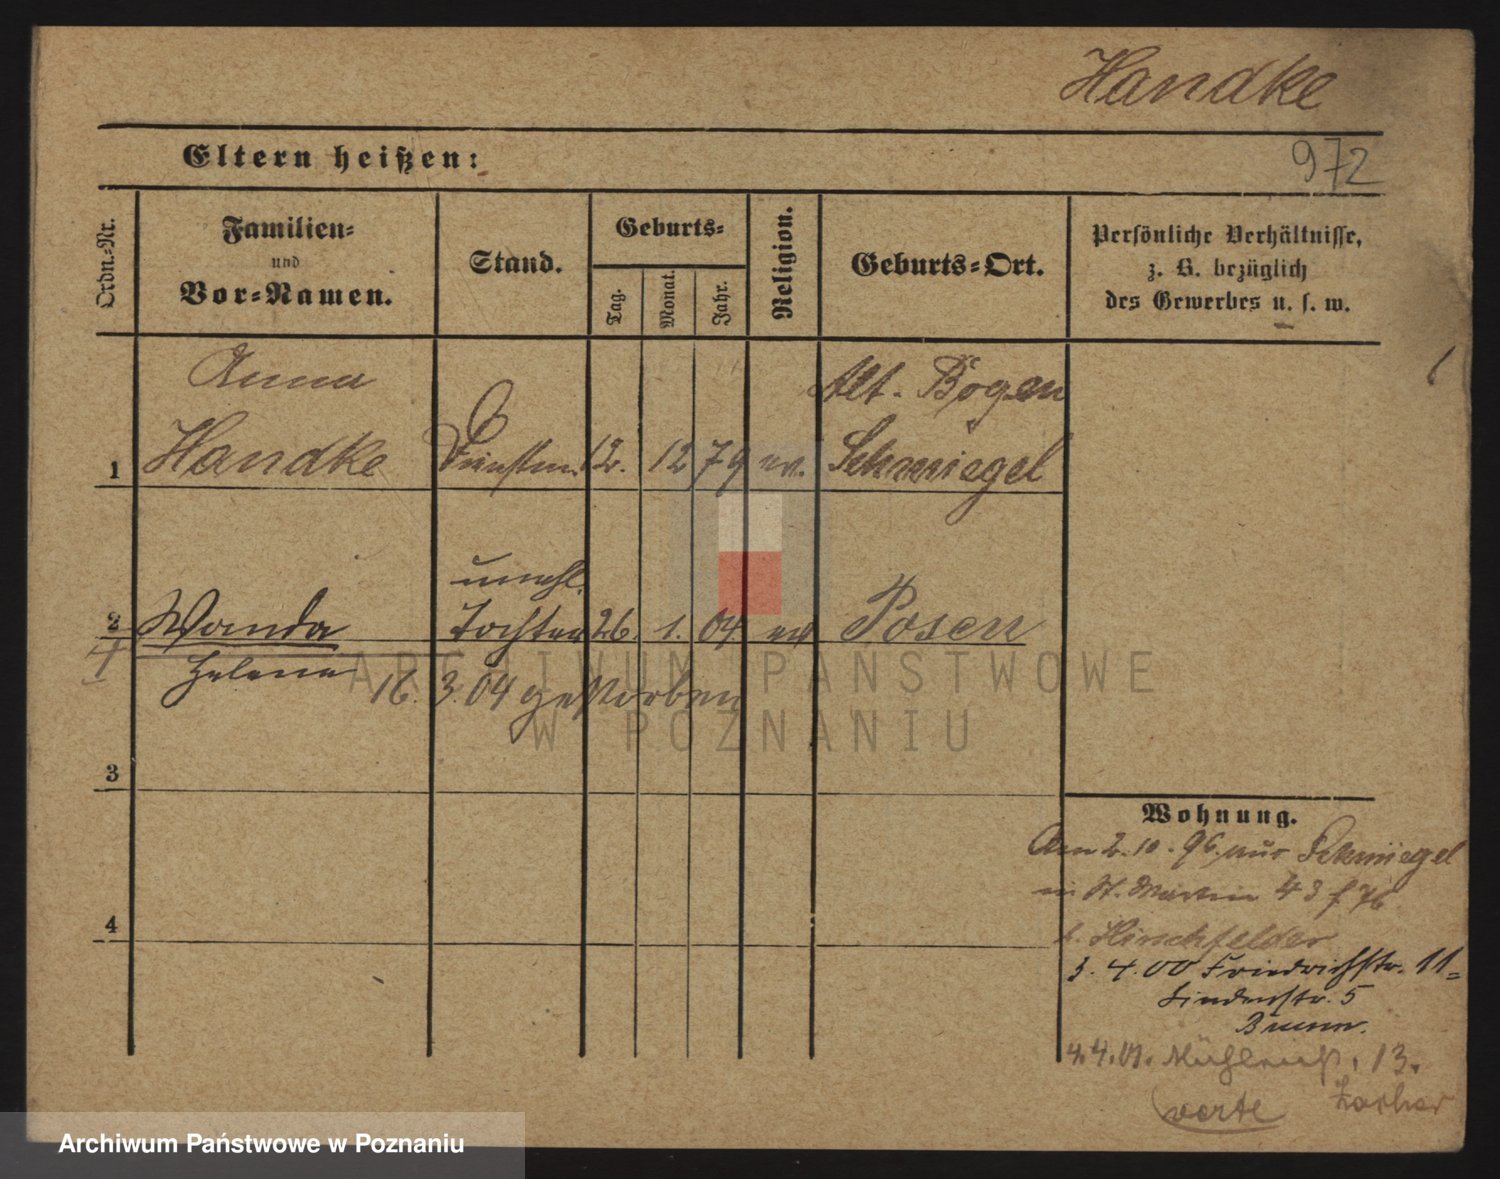 Handke
Eltern heißen:
972
Ordn.-Nr.
Familien-
und
Vor-Namen.
Stand.
Geburts-
Tag.
Monat.
Jahr.
Religion.
Geburts-Ort.
Persönliche Verhältnisse,
z. B. bezüglich
des Gewerbes u. s. w.
Anna
Alt. Bogen
1 Handke 12. 12 79 ev. Schmiegel
unehl.
2 Wanda Tochter 26. 1. 04 ev Posen
Helene
16. 3. 04 gestorben
3
4
Wohnung.
Am 2. 10. 96 aus Schmiegel
in St. Martin 43
b. Hirschfelder
3. 4. 00 Friedrichstr. 11
Lindenstr. 5
4. 4. 01. Mühlenstr. 13.
verte
ARCHIWUM PAŃSTWOWE
W POZNANIU
Archiwum Państwowe w Poznaniu